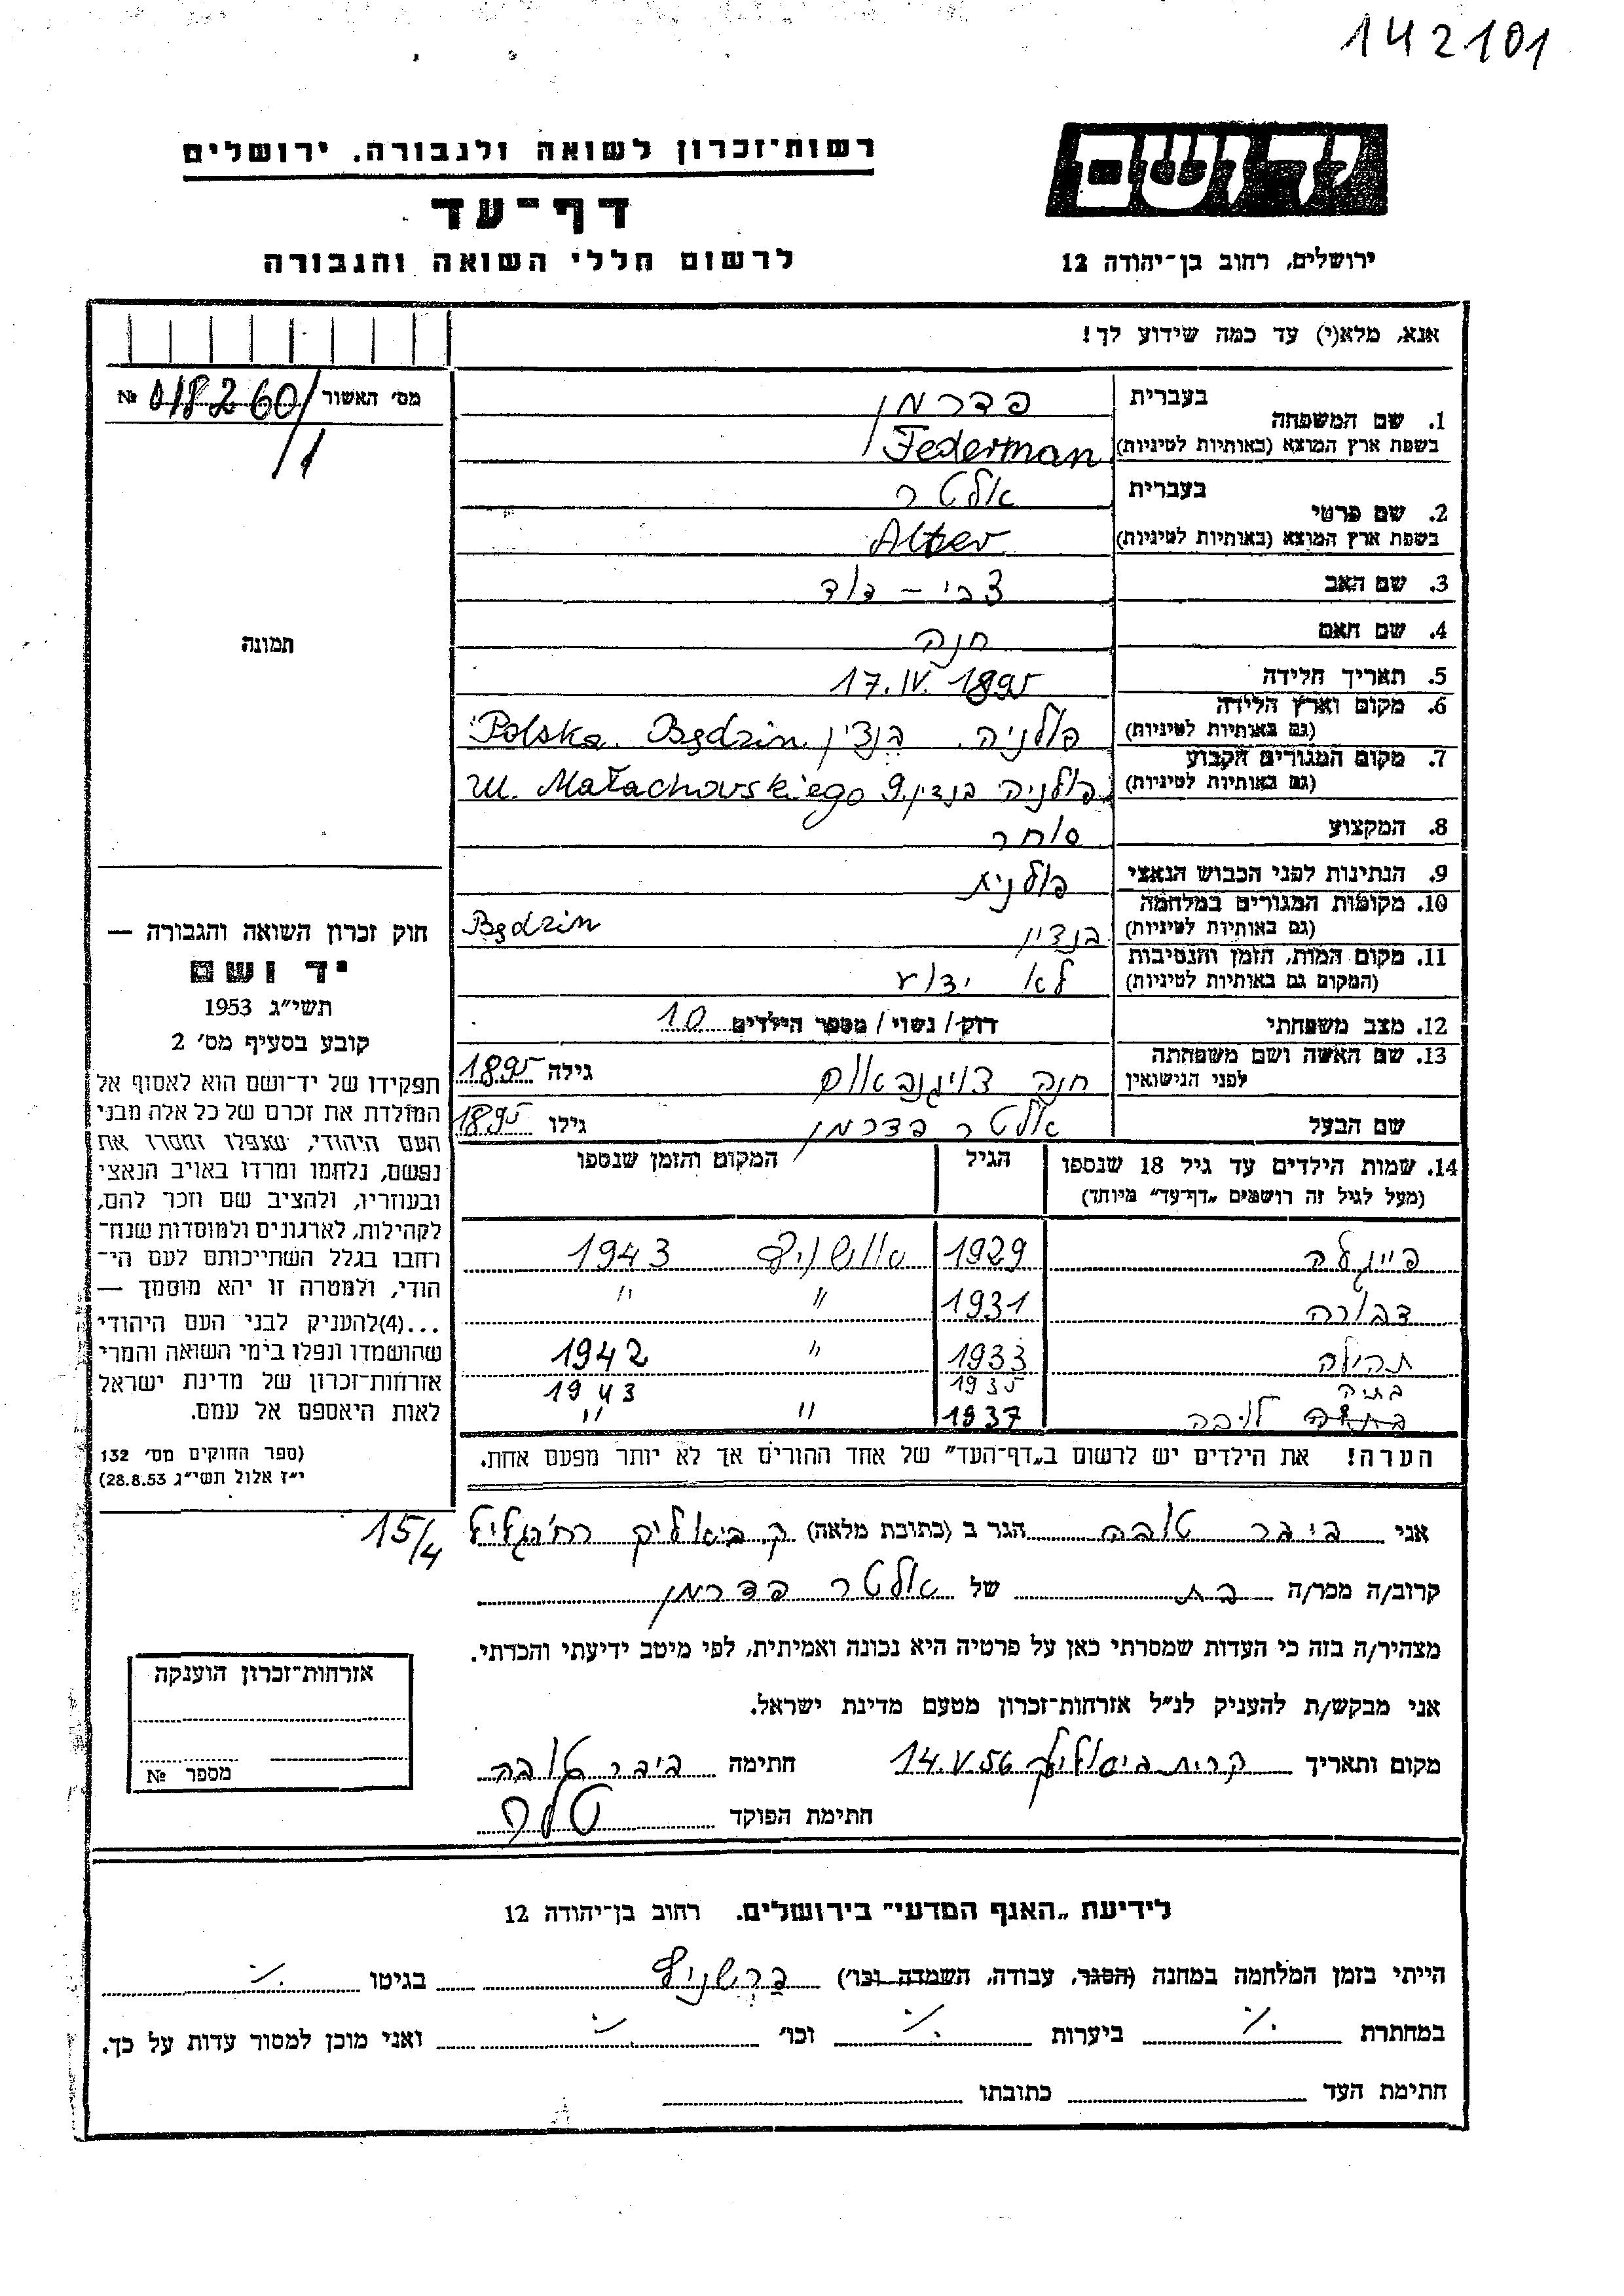 142101
יד ושם
רשות־זכרון לשואה ולגבורה. ירושלים
דף־עד
לרשום חללי השואה והגבורה
ירושלים, רחוב בן־יהודה 12
אנא, מלא(י) עד כמה שידוע לך!
מס׳ האשור 018260/ №
/1
תמונה
1. שם המשפחה
בעברית פדרמן
בשפת ארץ המוצא (באותיות לטיניות) Federman
2. שם פרטי
בעברית אלטר
בשפת ארץ המוצא (באותיות לטיניות) Alter
3. שם האב צבי – דוד
4. שם האם חנה
5. תאריך הלידה 17.IV.1895
6. מקום וארץ הלידה
(גם באותיות לטיניות) פולניה. בנדין Polska. Będzin.
7. מקום המגורים הקבוע
(גם באותיות לטיניות) פולניה בנדין ul. Małachowskiego 9.
8. המקצוע סוחר
9. הנתינות לפני הכבוש הנאצי פולנית
10. מקומות המגורים במלחמה
(גם באותיות לטיניות) בנדין Będzin
11. מקום המות, הזמן והנסיבות
(המקום גם באותיות לטיניות) לא ידוע
12. מצב משפחתי רווק/ נשוי/ מספר הילדים 10
13. שם האשה ושם משפחתה
לפני הנישואין חנה צויגנבאום גילה 1895
שם הבעל אלטר פדרמן גילו 1895
14. שמות הילדים עד גיל 18 שנספו
(מעל לגיל זה רושמים „דף־עד” מיוחד)
הגיל
המקום והזמן שנספו
פייגלה 1929 אושויץ 1943
דבורה 1931 〃 〃
תהילה 1933 〃 1942
בתיה 1935 1943
ליבה 1937 〃 〃
הערה! את הילדים יש לרשום ב„דף־העד” של אחד ההורים אך לא יותר מפעם אחת.
חוק זכרון השואה והגבורה —
יד ושם
תשי״ג 1953
קובע בסעיף מס׳ 2
תפקידו של יד־ושם הוא לאסוף אל
המולדת את זכרם של כל אלה מבני
העם היהודי, שנפלו ומסרו את
נפשם, נלחמו ומרדו באויב הנאצי
ובעוזריו, ולהציב שם וזכר להם,
לקהילות, לארגונים ולמוסדות שנח־
רחבו בגלל השתייכותם לעם הי־
הודי, ולמטרה זו יהא מוסמך —
...(4)להעניק לבני העם היהודי
שהושמדו ונפלו בימי השואה והמרי
אזרחות־זכרון של מדינת ישראל
לאות היאספם אל עמם.
(ספר החוקים מס׳ 132
י״ז אלול תשי״ג 28.8.53)
15/4
אני ביבר טובה הגר ב (כתובת מלאה) ק. ביאליק רח׳ גליל
קרוב/ה מכר/ה בת של אלטר פדרמן
מצהיר/ה בזה כי העדות שמסרתי כאן על פרטיה היא נכונה ואמיתית, לפי מיטב ידיעתי והכרתי.
אני מבקש/ת להעניק לנ״ל אזרחות־זכרון מטעם מדינת ישראל.
מקום ותאריך קרית ביאליק 14.V.56 חתימה ביבר טובה
חתימת הפוקד
אזרחות־זכרון הוענקה
מספר №
לידיעת „האגף המדעי” בירושלים. רחוב בן־יהודה 12
הייתי בזמן המלחמה במחנה (הסגר, עבודה, השמדה וכו׳) בגיטו
במחתרת ביערות וכו׳ ואני מוכן למסור עדות על כך.
חתימת העד כתובתו